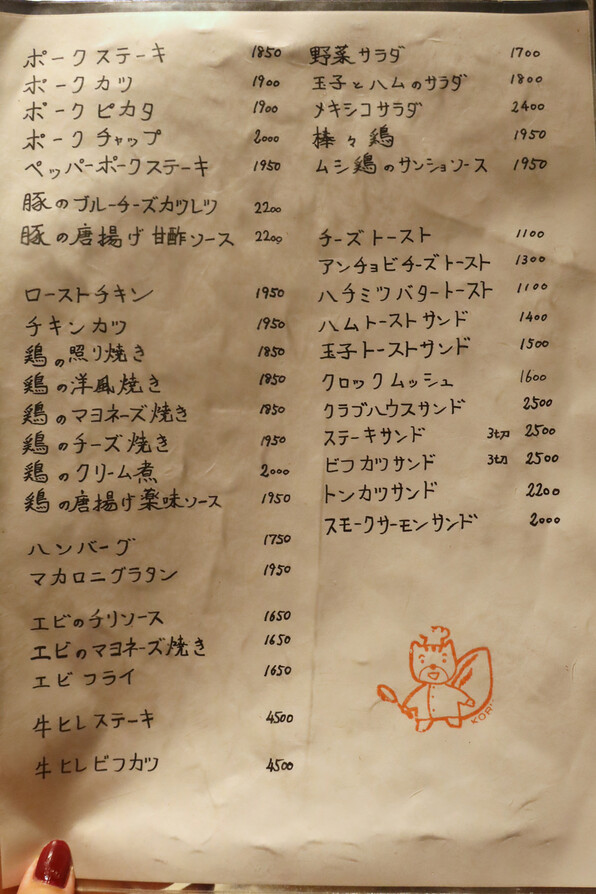 ポークステーキ 1850
ポークカツ 1900
ポークピカタ 1900
ポークチャップ 2000
ペッパーポークステーキ 1950
豚のブルーチーズカツレツ 2200
豚の唐揚げ甘酢ソース 2200
ローストチキン 1950
チキンカツ 1950
鶏の照り焼き 1850
鶏の洋風焼き 1850
鶏のマヨネーズ焼き 1850
鶏のチーズ焼き 1950
鶏のクリーム煮 2000
鶏の唐揚げ薬味ソース 1950
ハンバーグ 1750
マカロニグラタン 1950
エビのチリソース 1650
エビのマヨネーズ焼き 1650
エビフライ 1650
牛ヒレステーキ 4500
牛ヒレビフカツ 4500
野菜サラダ 1700
玉子とハムのサラダ 1800
メキシコサラダ 2400
棒々鶏 1950
ムシ鶏のサンショソース 1950
チーズトースト 1100
アンチョビチーズトースト 1300
ハチミツバタートースト 1100
ハムトーストサンド 1400
玉子トーストサンド 1500
クロックムッシュ 1600
クラブハウスサンド 2500
ステーキサンド 3切 2500
ビフカツサンド 3切 2500
トンカツサンド 2200
スモークサーモンサンド 2000